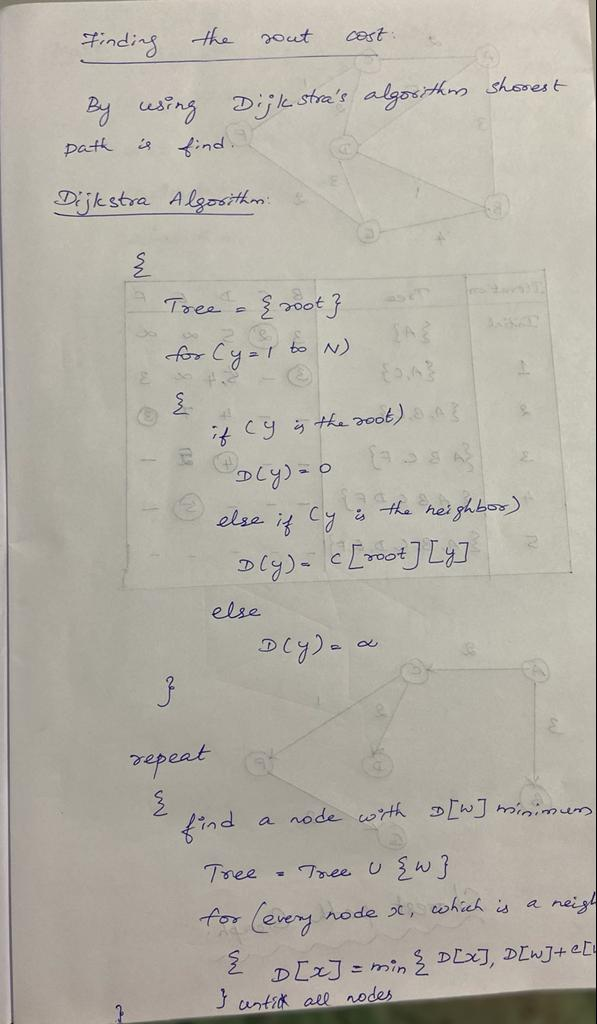 Finding the rout cost:
By using Dijkstra's algorithm shorest
path is find.
Dijkstra Algorithm:
{
Tree = {root}
for (y=1 to N)
{
if (y is the root)
D(y) = 0
else if (y is the neighbor)
D(y) = c[root][y]
else
D(y) = α
}
repeat
{
find a node with D[W] minimum
Tree = Tree ∪ {W}
for (every node x, which is a neigh
{ D[x] = min { D[x], D[w] + c[w
} until all nodes
}